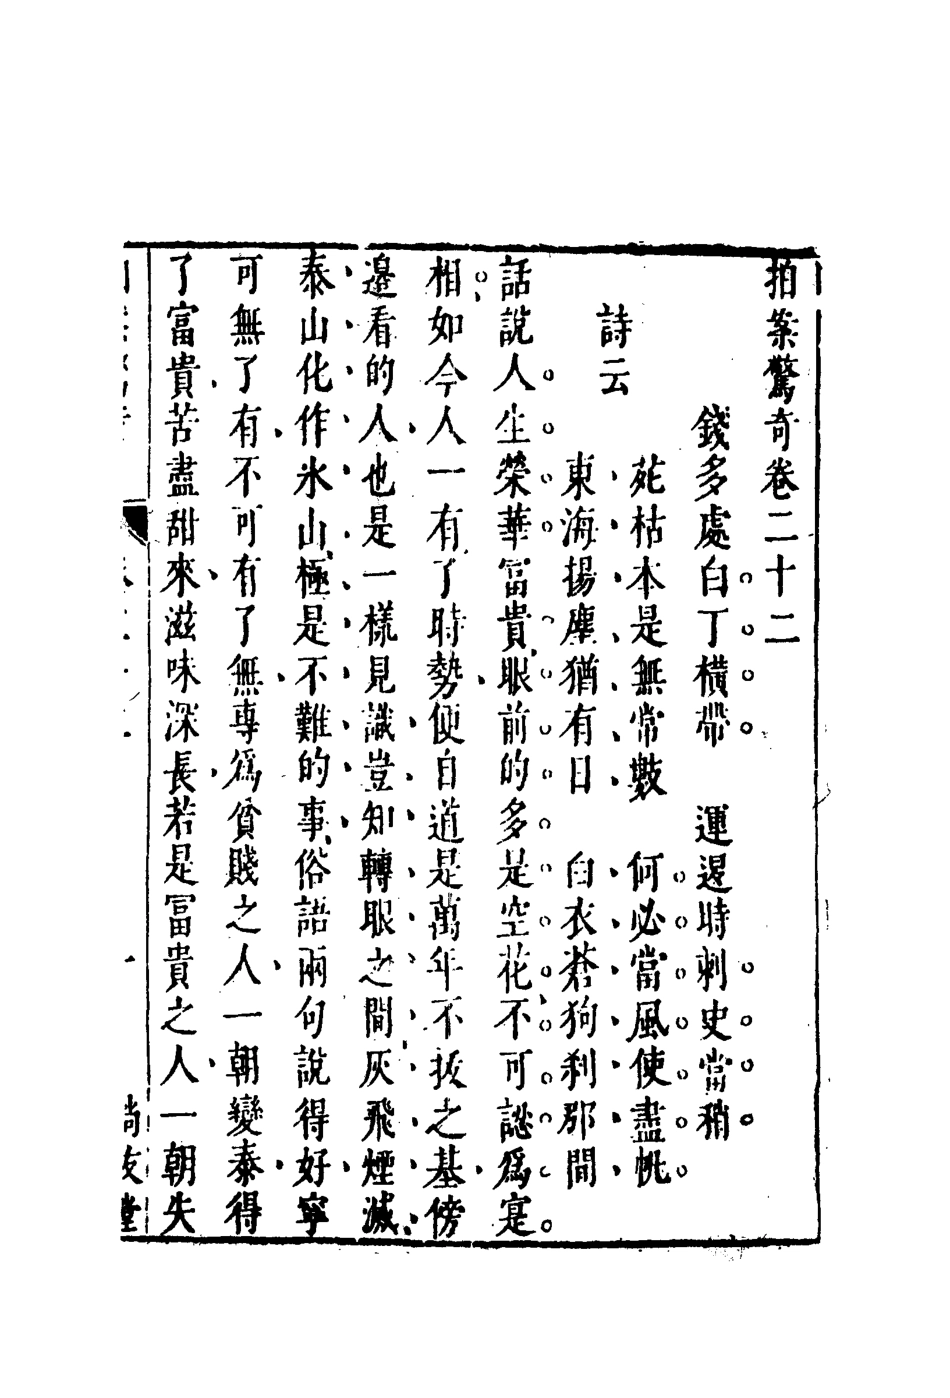 拍案驚奇卷二十二
錢多處白丁橫帶　運退時刺史當稍
詩云
苑枯本是無常數　何必當風使盡帆
東海揚塵猶有日　白衣蒼狗刹那間
話說人生榮華富貴眼前的多是空花不可認爲寔
相如今人一有了時勢便自道是萬年不拔之基傍
邊看的人也是一樣見識豈知轉眼之間灰飛煙滅
泰山化作氷山極是不難的事俗語兩句說得好寧
可無了有不可有了無專爲貧賤之人一朝變泰得
了富貴苦盡甜來滋味深長若是富貴之人一朝失
尚友堂